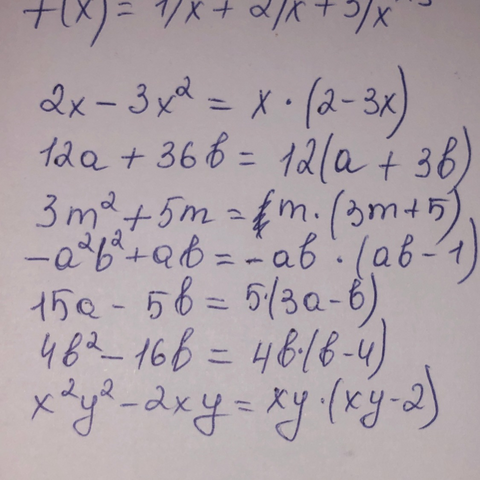 f(x) = 1/x + 2/x + 3/x
2x - 3x² = x · (2 - 3x)
12a + 36b = 12(a + 3b)
3m² + 5m = m · (3m + 5)
-a²b² + ab = -ab · (ab - 1)
15a - 5b = 5·(3a - b)
4b² - 16b = 4b·(b - 4)
x²y² - 2xy = xy · (xy - 2)